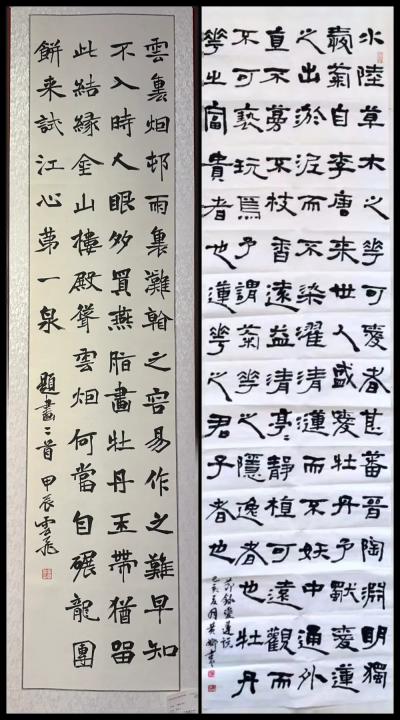 雲裏烟邨雨裏灘看之容易作之難早知
不入時人眼多買燕脂畫牡丹玉帶猶留
此結緣金山樓殿聳雲烟何當自碾龍團
餅来試江心第一泉
題畫二首 甲辰雲飛
水陸草木之花可愛者甚蕃晉陶淵明獨
愛菊自李唐来世人盛愛牡丹予獨愛蓮
之出淤泥而不染濯清漣而不妖中通外
直不蔓不枝香遠益清亭〻静植可遠觀而
不可褻玩焉予謂菊花之隱逸者也牡丹
花之富貴者也蓮花之君子者也
節録愛蓮説
己亥夏月